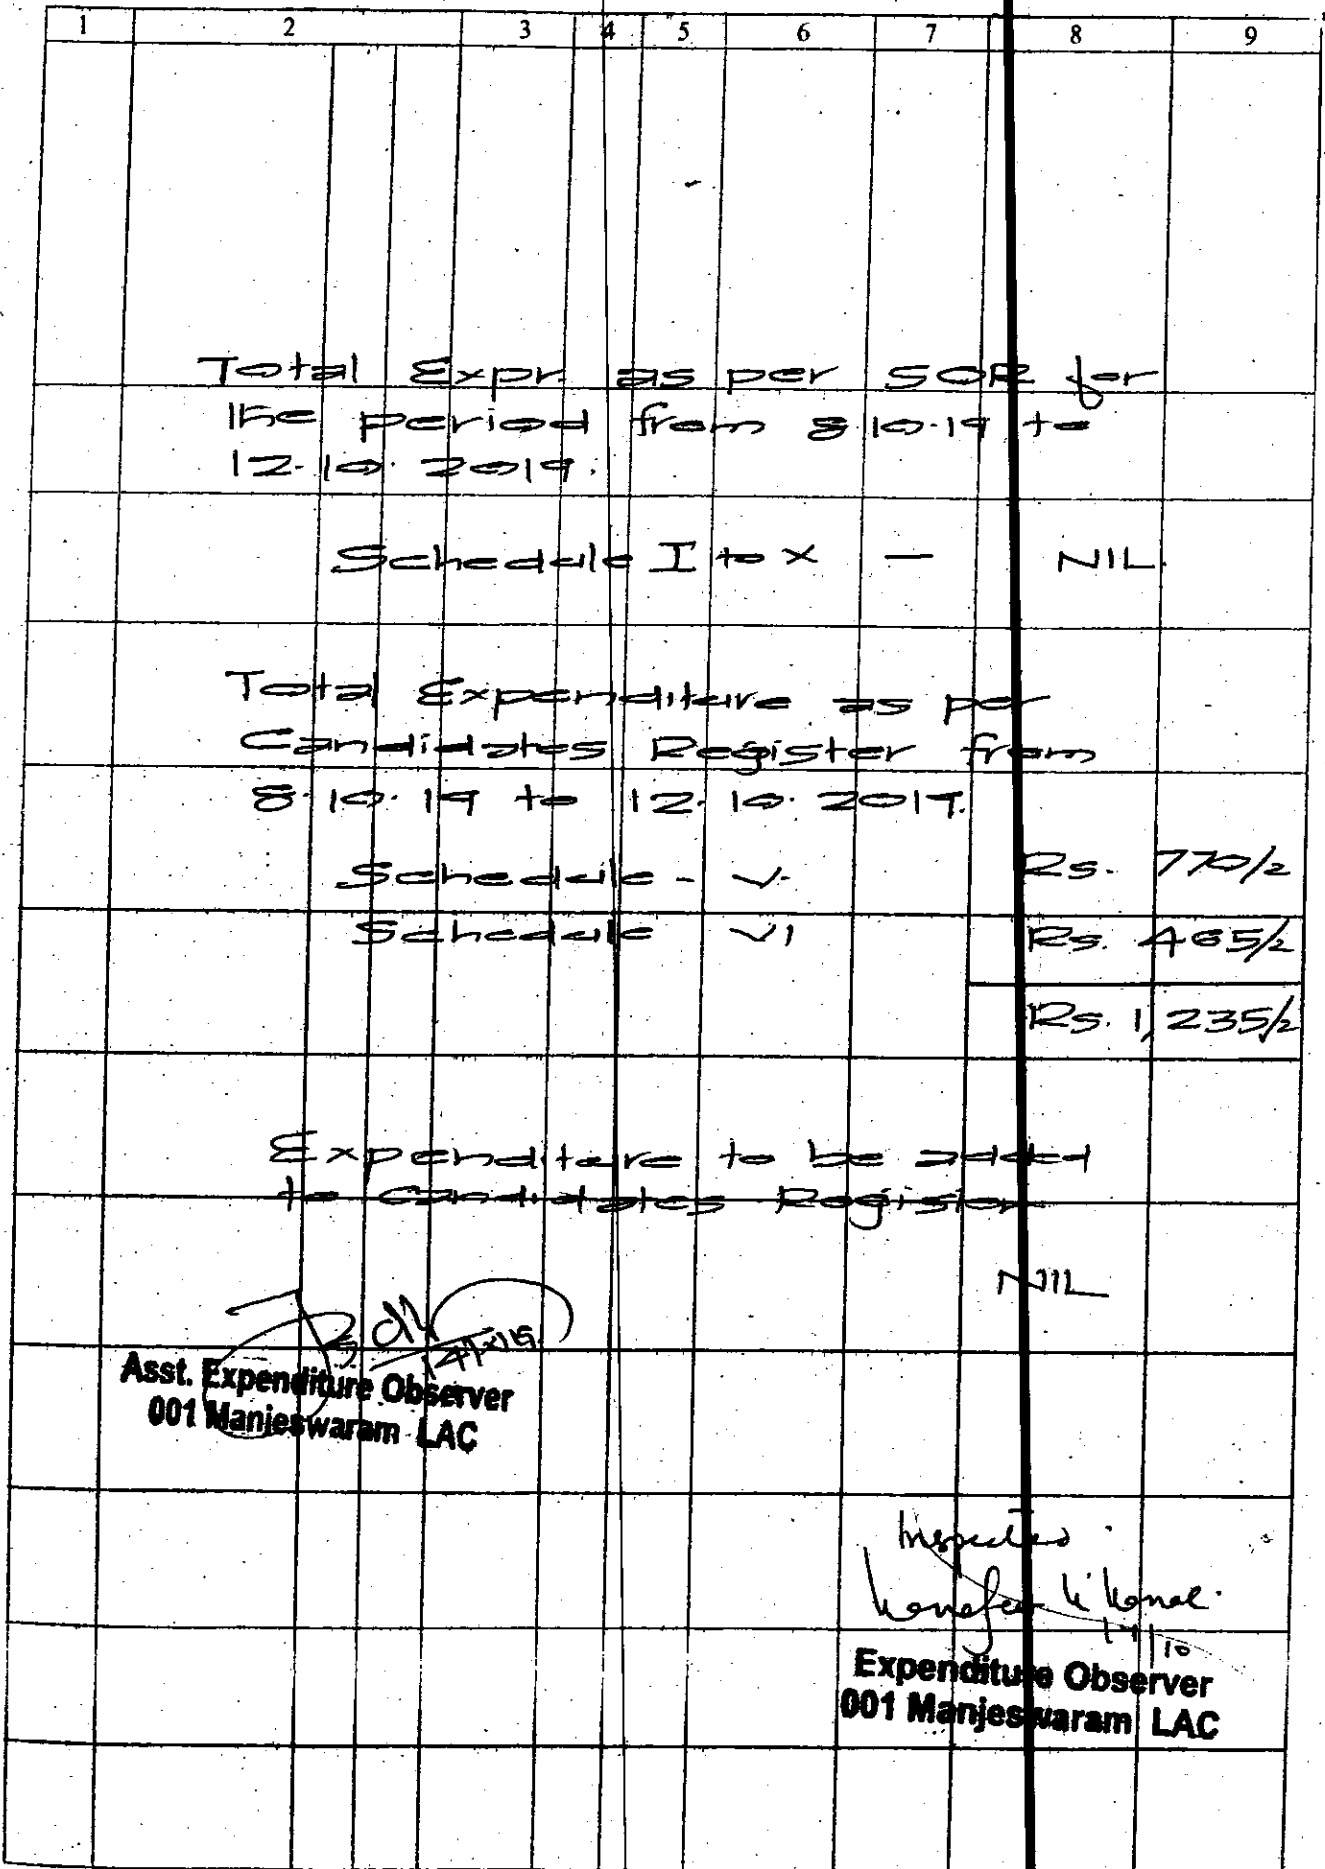 1 2 3 4 5 6 7 8 9
Total Expr. as per SOR for
the period from 8.10.19 to
12.10.2019.
Schedule I to X — NIL.
Total Expenditure as per
Candidates Register from
8.10.19 to 12.10.2019.
Schedule - V. Rs. 770/2
Schedule VI Rs. 465/2
Rs. 1,235/2
Expenditure to be added
to Candidates Register
NIL
Asst. Expenditure Observer
001 Manjeswaram LAC
Inspected.
14/10
Expenditure Observer
001 Manjeswaram LAC